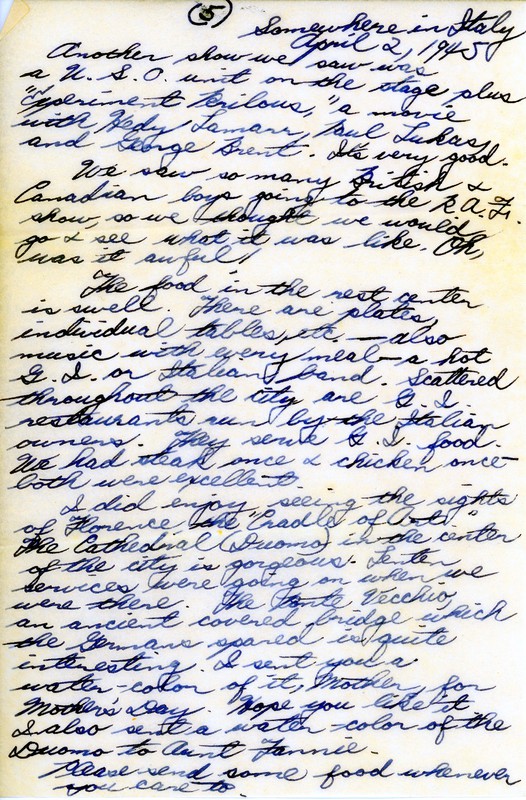 (5)
Somewhere in Italy
April 2, 1945
Another show we saw was
a U.S.O. unit on the stage plus
"Experiment Perilous," a movie
with Hedy Lamarr, Paul Lukas,
and George Brent. It's very good.
We saw so many British &
Canadian boys going to the R.A.F.
show, so we thought we would
go & see what it was like. Oh,
was it awful!
The food in the rest center
is swell. There are plates,
individual tables, etc. — also
music with every meal - a hot
G.I. or Italian band. Scattered
throughout the city are G.I.
restaurants run by the Italian
owners. They serve G.I. food.
We had steak once & chicken once -
both were excellent.
I did enjoy seeing the sights
of Florence, the "Cradle of Arts."
The Cathedral (Duomo) in the center
of the city is gorgeous. Lenten
services were going on when we
were there. The Ponte Vecchio,
an ancient covered bridge which
the Germans spared is quite
interesting. I sent you a
water-color of it, Mother, for
Mother's Day. Hope you like it.
I also sent a water-color of the
Duomo to Aunt Fannie.
Please send some food whenever
you care to.